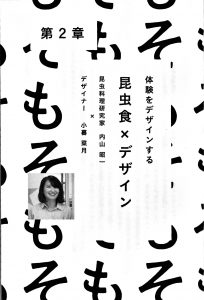 第2章
体験をデザインする
昆虫食×デザイン
昆虫料理研究家 内山 昭一
×
デザイナー 小暮
もそもそ
もそも